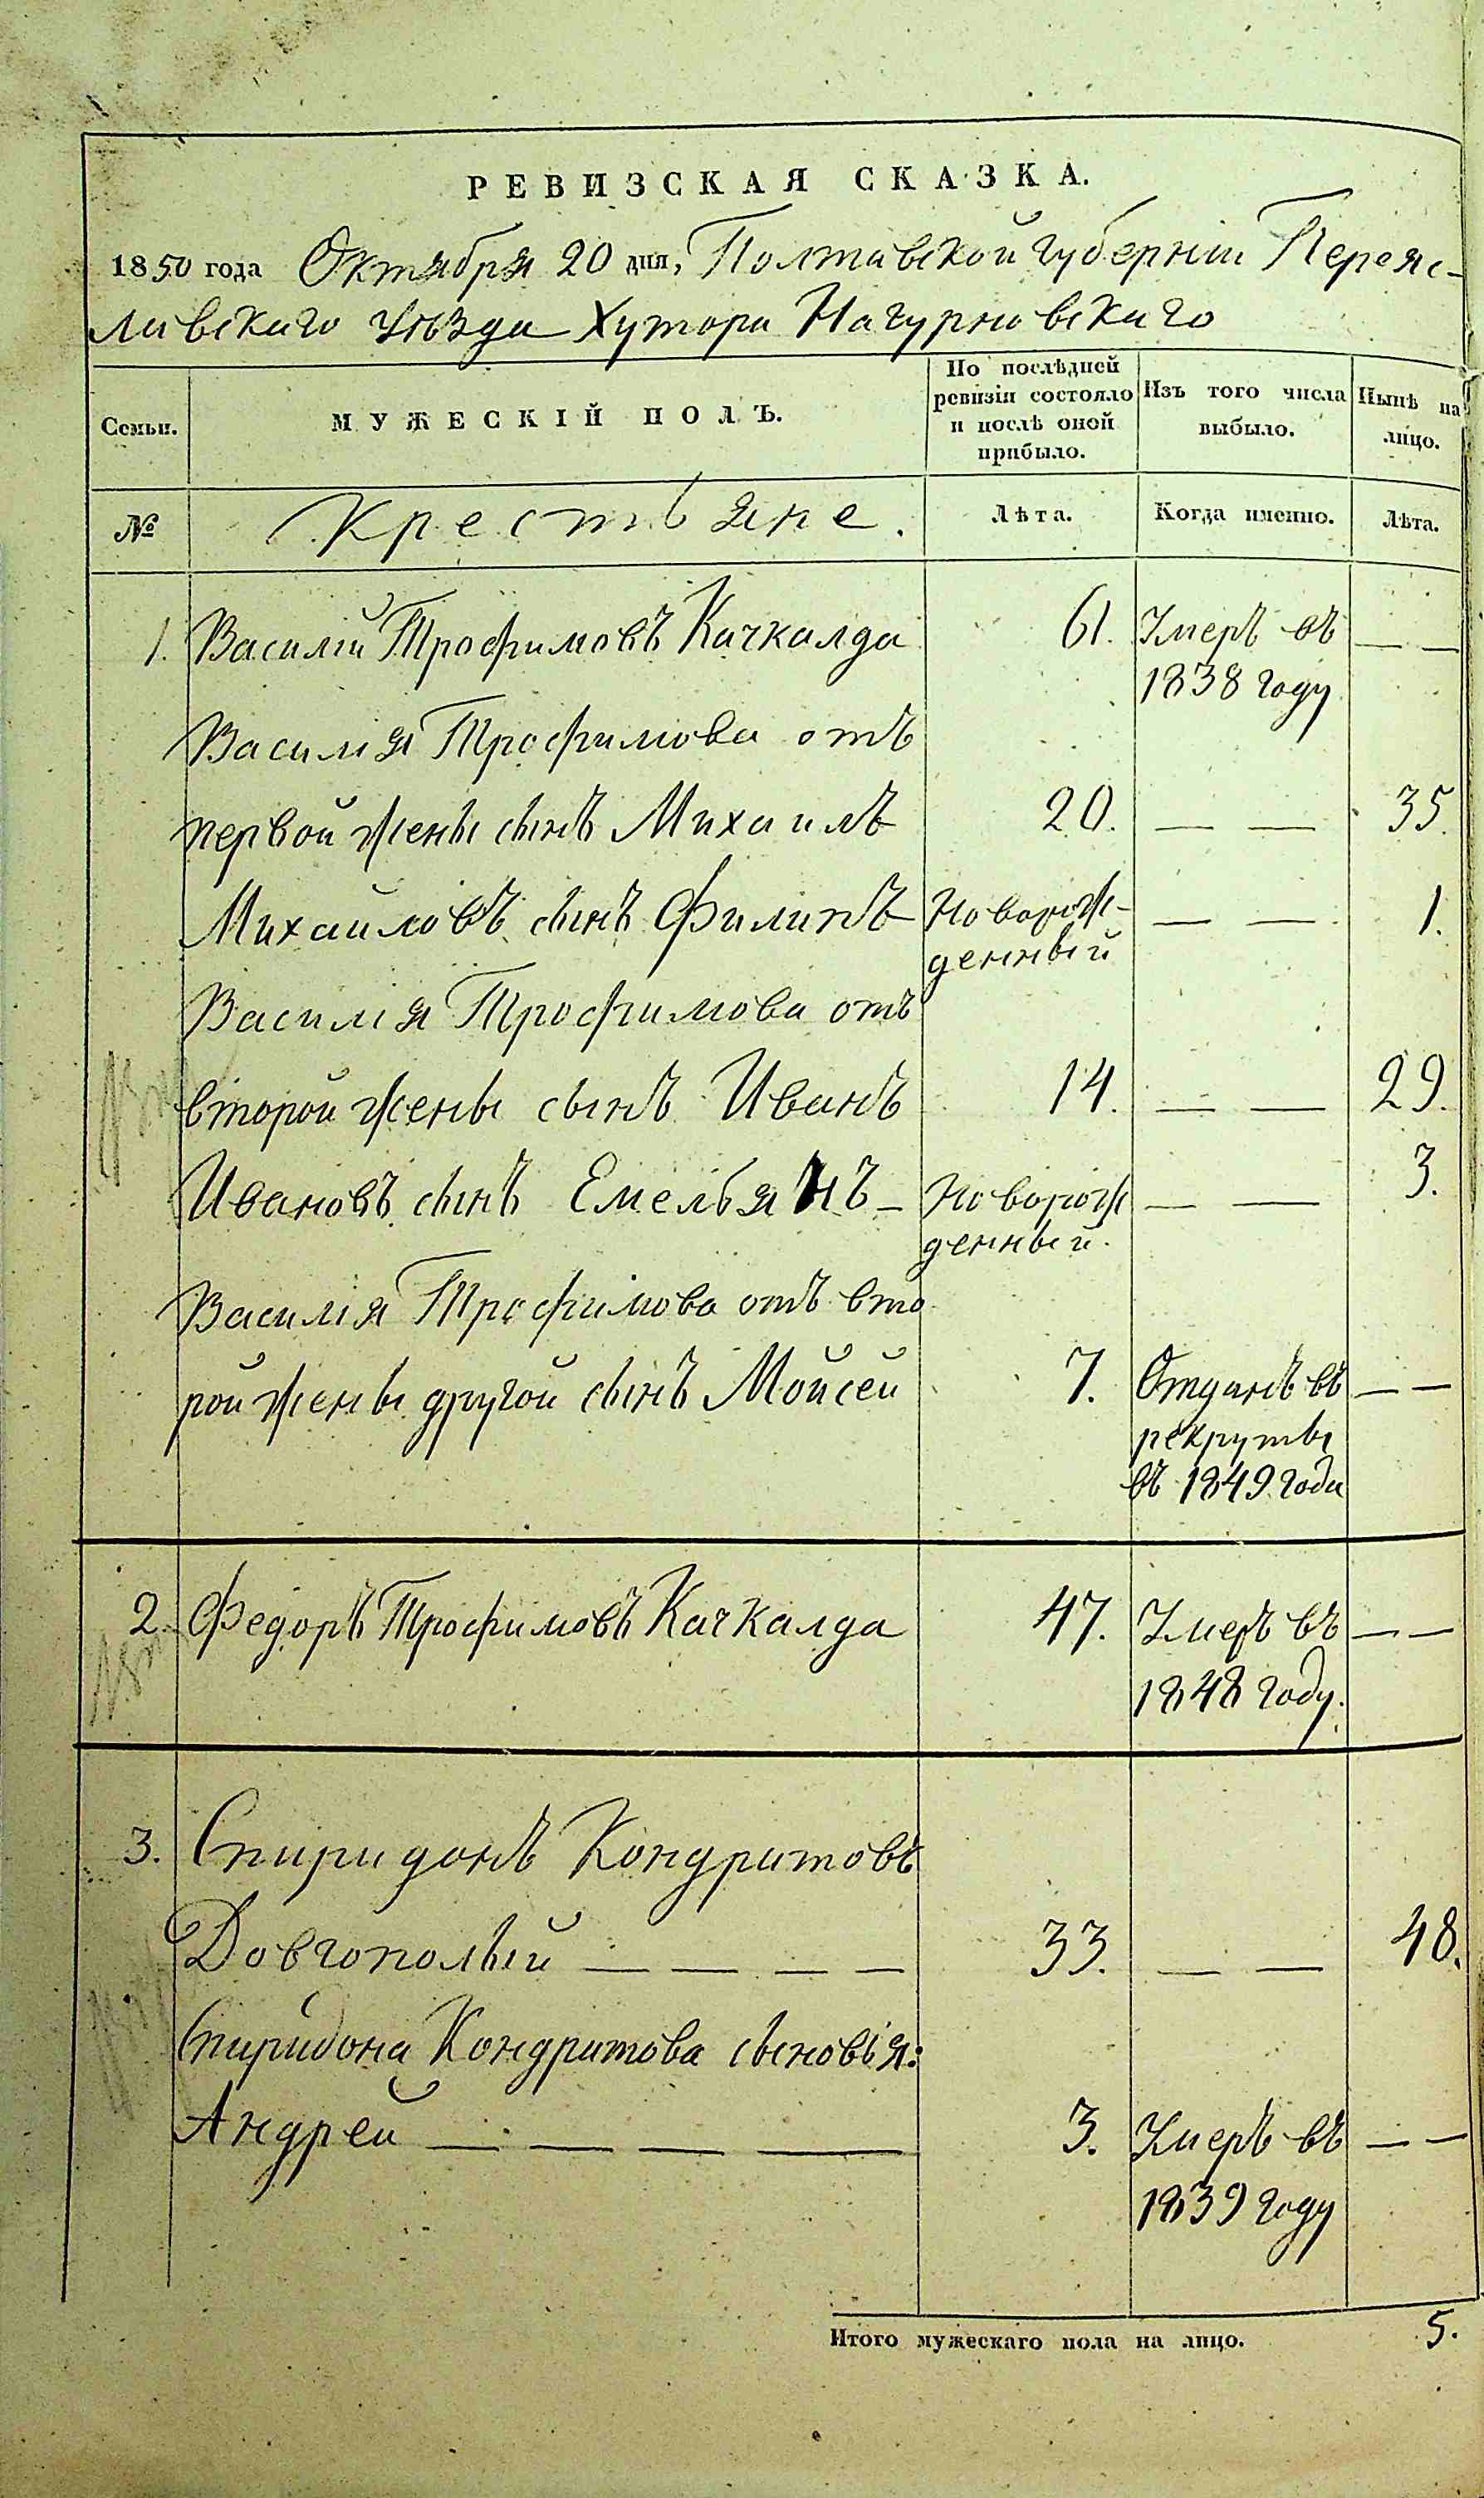 РЕВИЗСКАЯ СКАЗКА.
1850 года Октября 20 дня, Полтавской губерніи Переяс-
лавскаго Уѣзда Хутора Чагурновскаго
Семьи. МУЖЕСКІЙ ПОЛЪ. По послѣдней ревизіи состояло и послѣ оной прибыло. Изъ того числа выбыло. Нынѣ на лицо.
№ Крестьяне. Лѣта. Когда именно. Лѣта.
1. Василій Трофимовъ Качкалда 61. Умеръ въ — —
1838 году
Василія Трофимова отъ
первой жены сынъ Михаилъ 20. — — 35.
Михайловъ сынъ Филипъ Новорож- — — 1.
денный
Василія Трофимова отъ
второй жены сынъ Иванъ 14. — — 29.
Ивановъ сынъ Емельянъ — Новорож — — 3.
денный.
Василія Трофимова отъ вто
рой жены другой сынъ Мойсей 7. Отданъ въ — —
рекруты
въ 1849 года
2. Федоръ Трофимовъ Качкалда 47. Умеръ въ — —
1848 году.
3. Спиридонъ Кондратовъ
Довгополый — — — — 33. — — 48.
Спиридона Кондратова сыновья:
Андрей — — — — 3. Умеръ въ — —
1839 году
Итого мужескаго пола на лицо. 5.